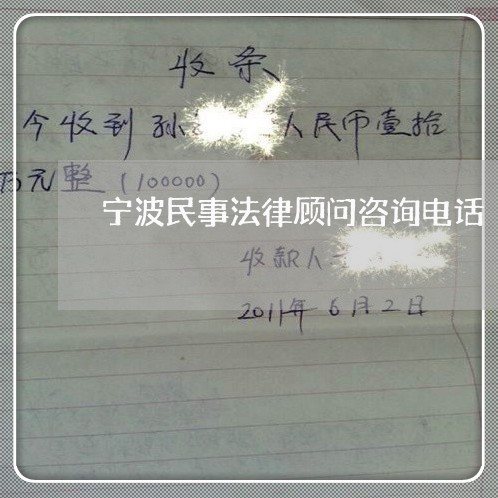 收条
今收到孙 人民币壹拾
万元整（100000）
宁波民事法律顾问咨询电话
收款人
2011年6月2日